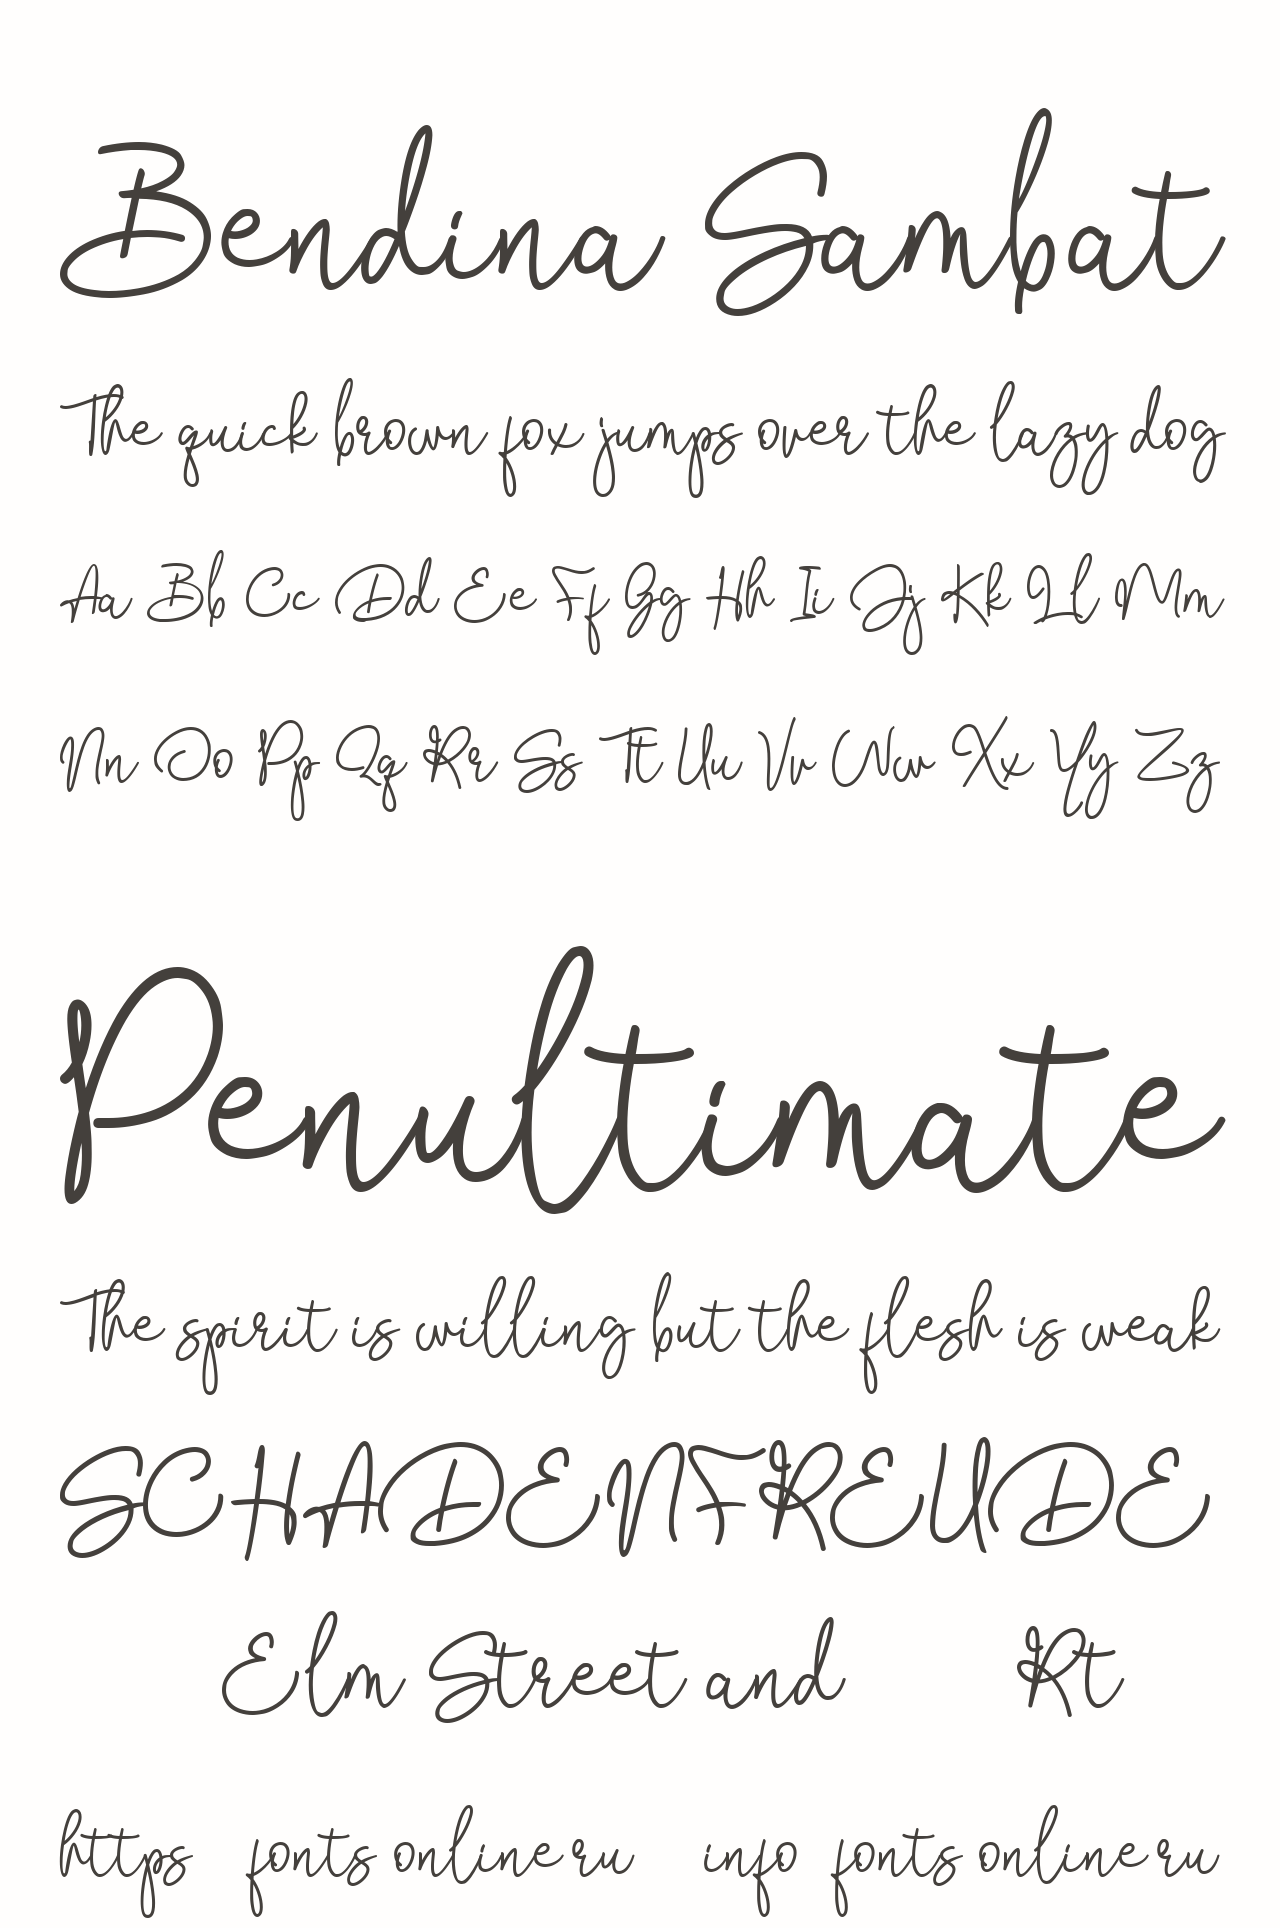 Bendina Sambat
The quick brown fox jumps over the lazy dog
Aa Bb Cc Dd Ee Ff Gg Hh Ii Jj Kk Ll Mm
Nn Oo Pp Qq Rr Ss Tt Uu Vv Ww Xx Yy Zz
Penultimate
The spirit is willing but the flesh is weak
SCHADENFREUDE
Elm Street and Rt
https fonts online ru info fonts online ru